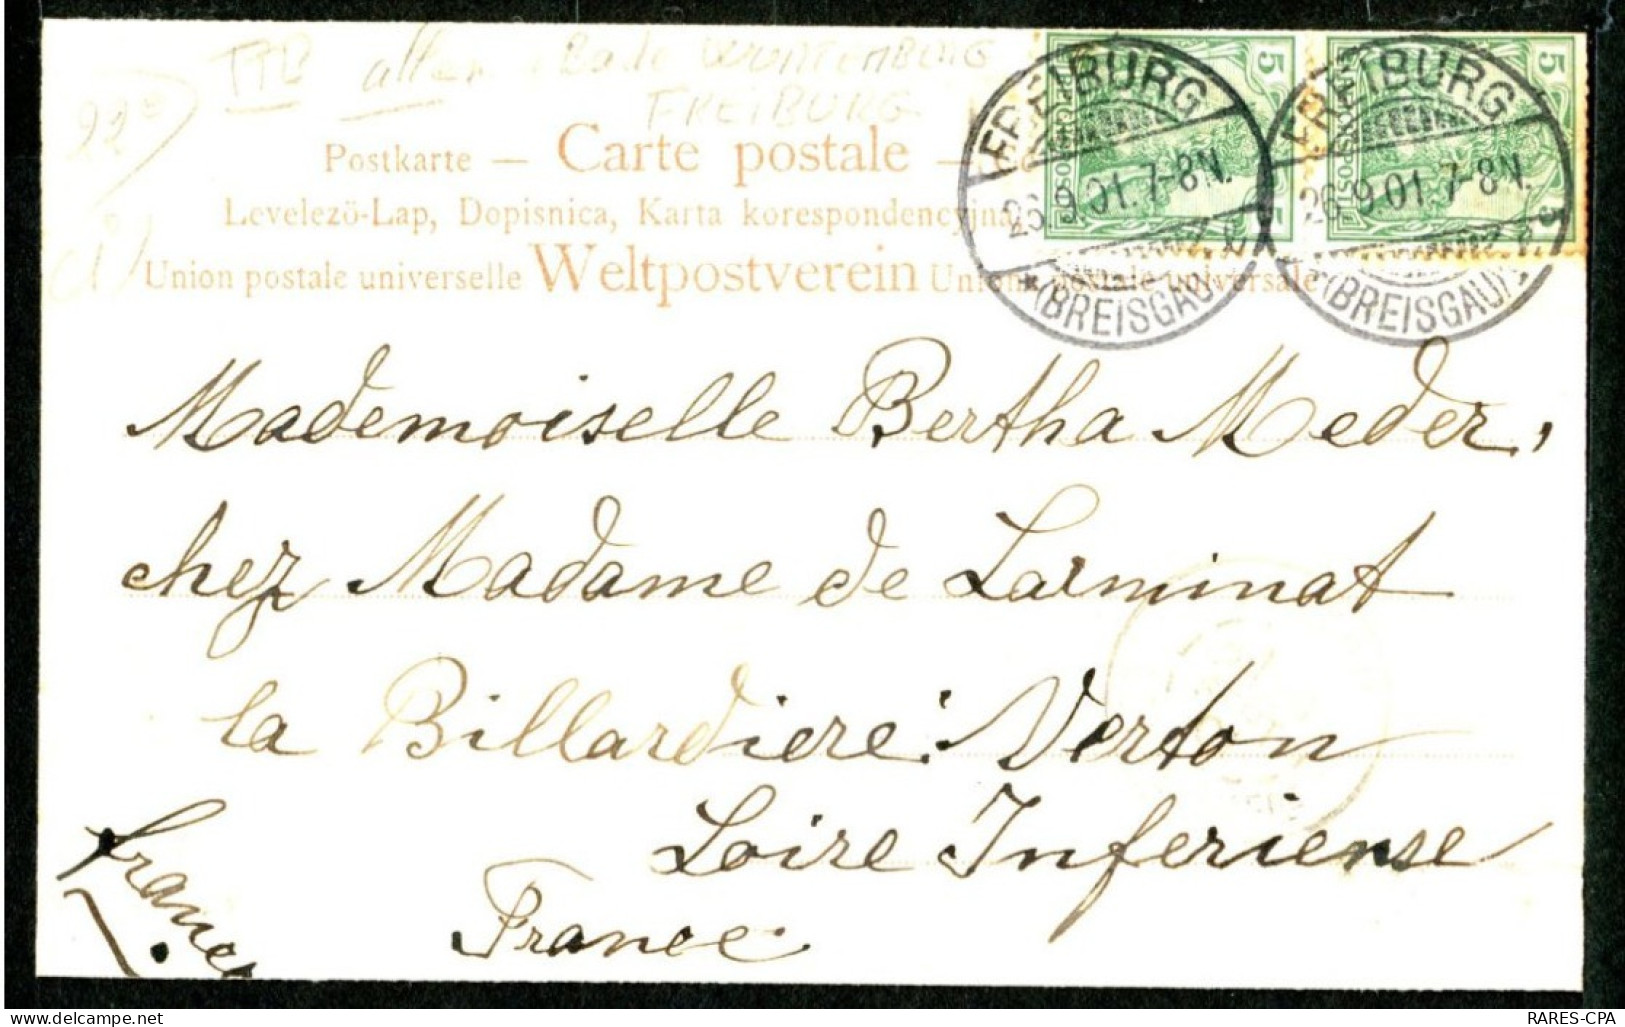 TTB allem Bade WURTEMBERG
FREIBURG
Postkarte — Carte postale —
Levelező-Lap, Dopisnica, Karta korespondencyjna,
Union postale universelle Weltpostverein Union postale universale
FREIBURG
26.9.01.7-8N.
*(BREISGAU)
5
5
FREIBURG
26.9.01.7-8N.
*(BREISGAU)
5
5
Mademoiselle Bertha Meder,
chez Madame de Larminat
la Billardiere: Verton
Loire Inferieuse
France
France
RARES-CPA